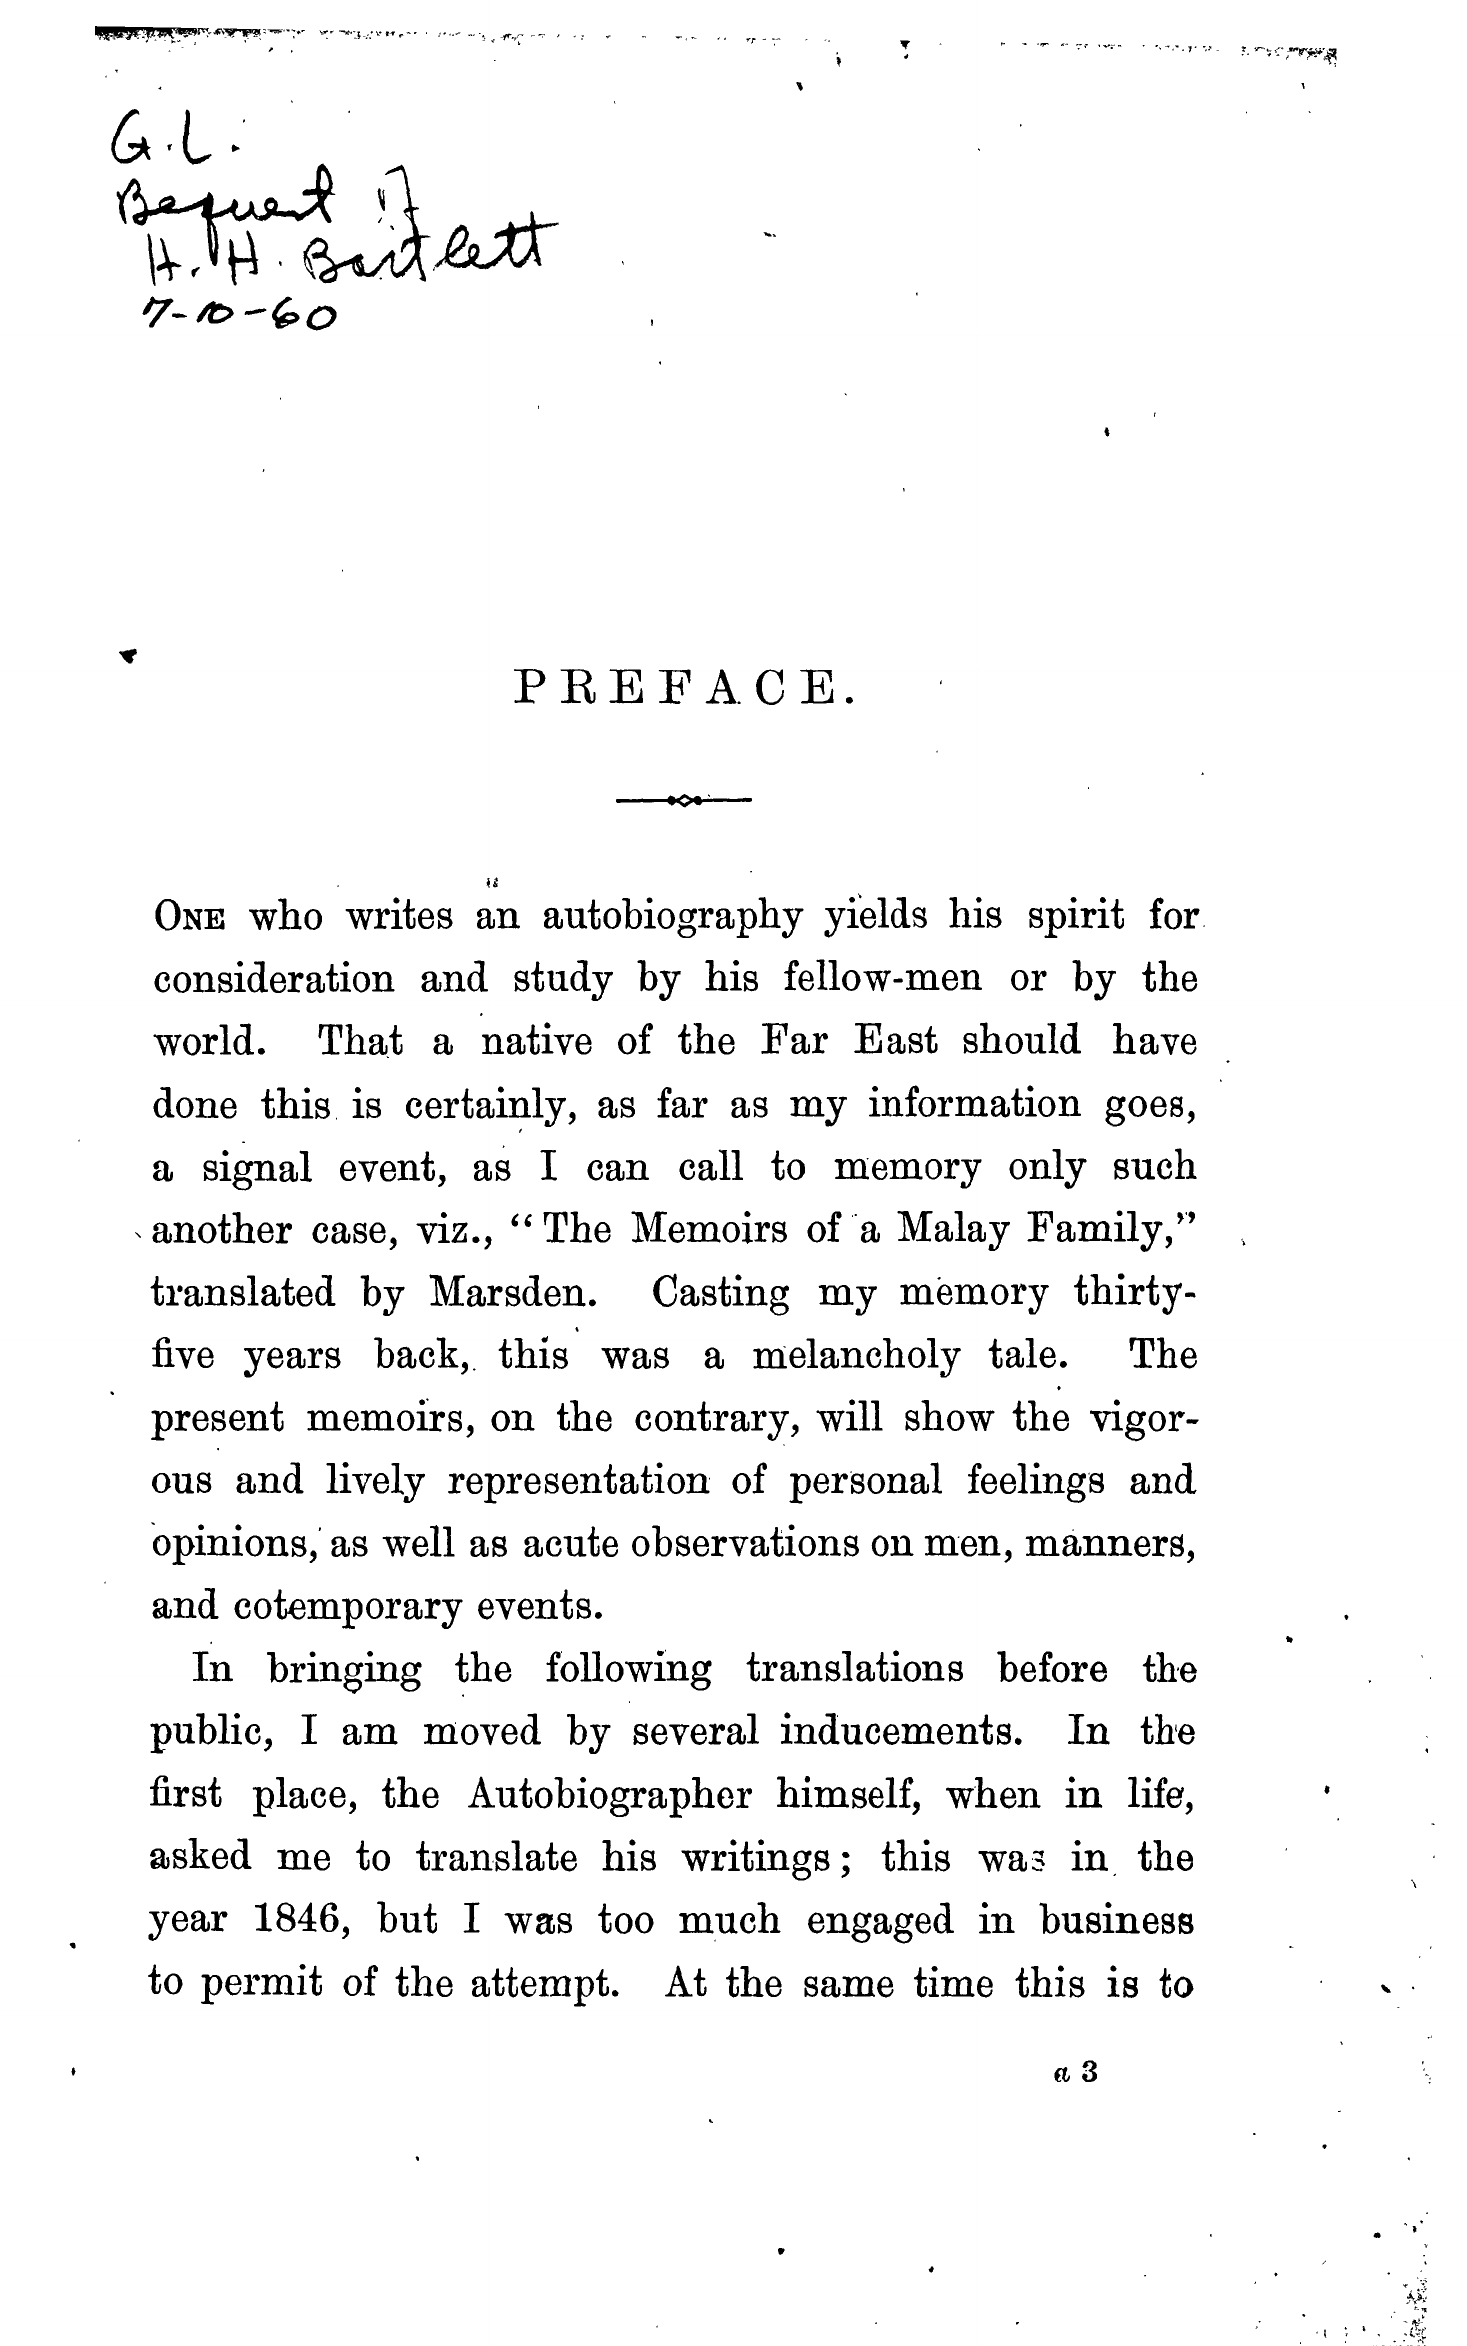 G.L.
Bequest of
H. H. Bartlett
7-10-60
PREFACE.
ONE who writes an autobiography yields his spirit for
consideration and study by his fellow-men or by the
world. That a native of the Far East should have
done this is certainly, as far as my information goes,
a signal event, as I can call to memory only such
another case, viz., “The Memoirs of a Malay Family,”
translated by Marsden. Casting my memory thirty-
five years back, this was a melancholy tale. The
present memoirs, on the contrary, will show the vigor-
ous and lively representation of personal feelings and
opinions, as well as acute observations on men, manners,
and cotemporary events.
In bringing the following translations before the
public, I am moved by several inducements. In the
first place, the Autobiographer himself, when in life,
asked me to translate his writings; this was in the
year 1846, but I was too much engaged in business
to permit of the attempt. At the same time this is to
a 3